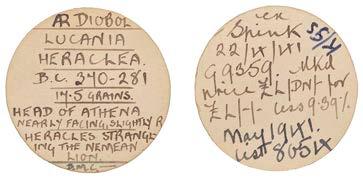 AR DIOBOL
LUCANIA
HERACLEA.
B.C. 340-281
14.5 GRAINS.
HEAD OF ATHENA
NEARLY FACING, SLIGHTLY R
HERACLES STRANGL
ING THE NEMEAN
LION.
BMC
ex
Spink
22/IX/XI
G9359. Mkd
price £L/DN/- for
£L/-/- less 9.39%
May 19XI.
list 805IX